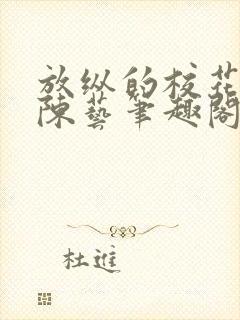 放纵的校花
陈艺笔趣阁
杜进